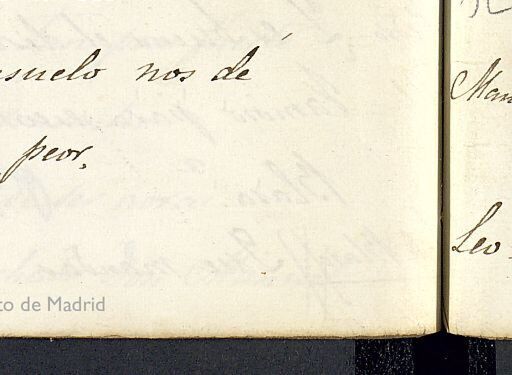 suelo nos dé
peor,
to de Madrid
Man
Leo